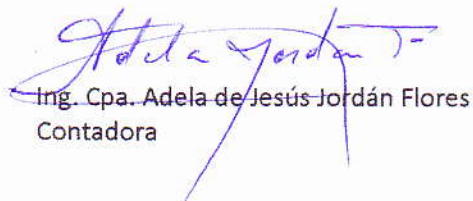 Adela Jordán F
Ing. Cpa. Adela de Jesús Jordán Flores
Contadora